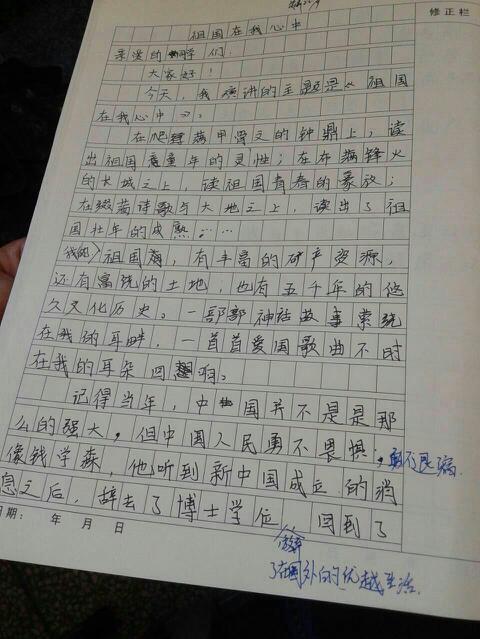 修正栏
祖国在我心中
亲爱的同学们:
大家好!
今天,我演讲的主题是《祖国
在我心中》。
在爬满甲骨文的钟鼎上,读
出祖国童年的灵性;在布满锋火
的长城之上,读祖国青春的豪放;
在缀满诗歌与大地之上,读出了祖
国壮年的成熟……
我的祖国有丰富的矿产资源,
还有富饶的土地,也有五千年的悠
久文化历史。一部部神话故事萦绕
在我的耳畔,一首首爱国歌曲不时
在我的耳朵回响。
记得当年,中国并不是是那
么的强大,但中国人民勇不畏惧;
像钱学森,他听到新中国成立的消
息之后,辞去了博士学位 回到了
日期: 年 月 日
放弃
了在国外的优越生活.